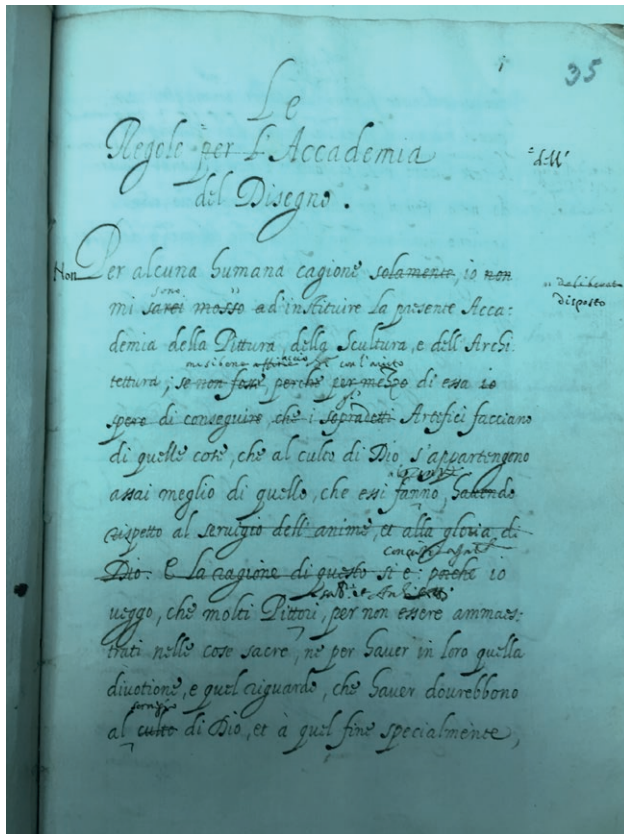 35
Le
Regole per l'Accademia
dell'
del Disegno.
Non Per alcuna humana cagione solamente, io non
deliberato
disposto
sono
mi sarei mosso ad instituire la presente Acca:
demia della Pittura, della Scultura, e dell'Archi:
con l'aiuto
tettura; se non fosse, perche per mezzo di essa io
gli
spero di conseguire, che i sopradetti Artefici facciano
di quelle cose, che al culto di Dio s'appartengono
assai meglio di quello, che essi fanno, havendo
rispetto al servigio dell'anime, et alla gloria di
Dio: E la ragione di questo si è: perche io
veggo, che molti Pittori, per non essere ammaes:
trati nelle cose sacre, ne per haver in loro quella
divotione, e quel riguardo, che haver dovrebbono
servigio
al culto di Dio, et à quel fine specialmente,